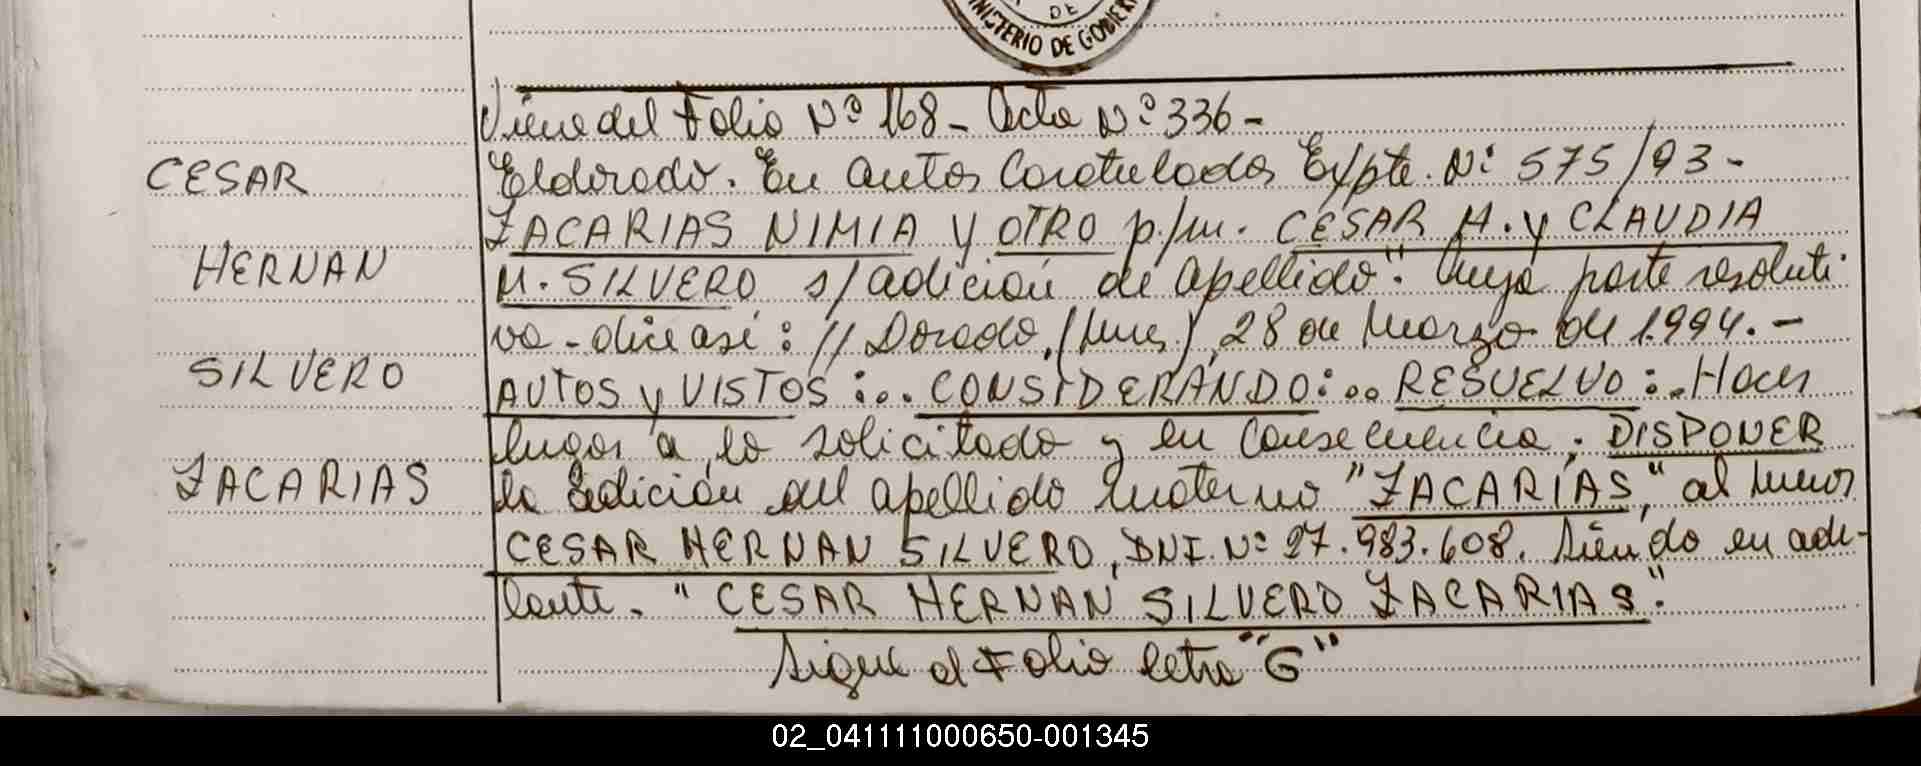 DE
MINISTERIO DE GOBIER
Viene del Folio Nº 168 - Acta Nº 336 -
CESAR
HERNAN
SILVERO
ZACARIAS
Eldorado. En autos Caratulados Expte. Nº 575/93 -
ZACARIAS NIMIA y OTRO p/m. CESAR H. y CLAUDIA
M. SILVERO s/ adición de apellido". Cuya parte resoluti
va - dice así: // Dorado, (Mnes), 28 de Marzo de 1.994. -
AUTOS y VISTOS:... CONSIDERANDO:.. RESUELVO:. Hacer
lugar a lo solicitado y en consecuencia; DISPONER
la adición del apellido materno "ZACARÍAS," al menor
CESAR HERNAN SILVERO, DNI. Nº 27.983.608. Siendo en ade-
lante. "CESAR HERNAN SILVERO ZACARIAS".
Sigue al Folio letra "G"
02_041111000650-001345